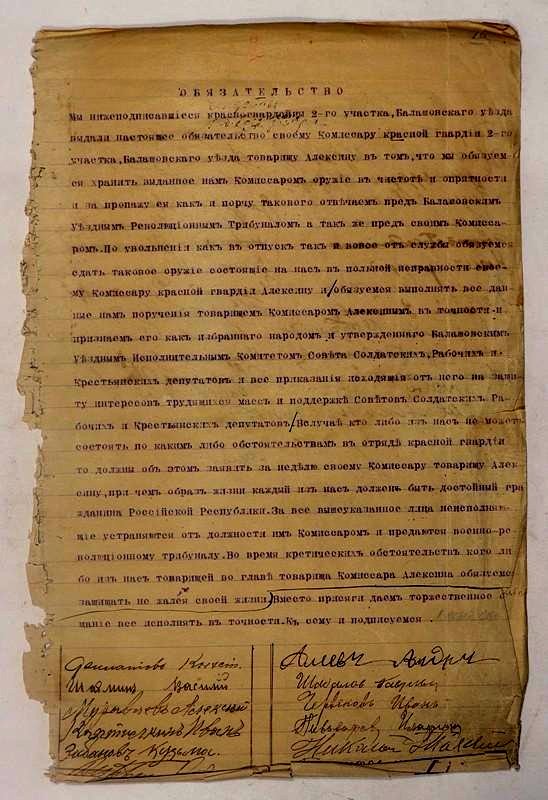 ОБЯЗАТЕЛЬСТВО
Мы нижеподписавшиеся красногвардейцы 2-го участка, Балашовскаго уѣзда
выдали настоящее обязательство своему Комиссару красной гвардіи 2-го
участка, Балашовскаго уѣзда товарищу Алексину въ томъ, что мы обязуем-
ся хранить выданное намъ Комиссаромъ оружіе въ чистотѣ и опрятности
и за пропажу ея какъ и порчу таковаго отвѣчаемъ предъ Балашовскимъ
Уѣзднымъ Революціоннымъ Трибуналомъ а такъ же предъ своимъ Комисса-
ромъ. По увольненіи какъ въ отпускъ такъ и вовсе отъ службы обязуемся
сдать таковое оружіе состоящіе на насъ въ полной исправности свое-
му Комиссару красной гвардіи Алексину и/обязуемся выполнять все дан
ные намъ порученія товарищемъ Комиссаромъ Алексинымъ въ точности и
признаемъ его какъ избраннаго народомъ и утвержденнаго Балашовскимъ
Уѣзднымъ Исполнительнымъ Комитетомъ Совѣта Солдатскихъ, Рабочихъ и
Крестьянскихъ депутатовъ и все приказанія исходящія отъ него на защи-
ту интересовъ трудящихся массъ и поддержкѣ Совѣтовъ Солдатскихъ Ра-
бочихъ и Крестьянскихъ депутатовъ/Вслучаѣ кто либо изъ насъ не можетъ
состоять по какимъ либо обстоятельствамъ въ отрядѣ красной гвардіи
то должны объ этомъ заявить за недѣлю своему Комиссару товарищу Алек-
сину, при чемъ образъ жизни каждый изъ насъ долженъ быть достойный гра
жданина Россійской Республики. За все вышеуказанное лица неисполняю-
щіе устраняются отъ должности имъ Комиссаромъ и предаются военно-ре-
волюціонному трибуналу. Во время кретическихъ обстоятельствъ кого ли
бо изъ насъ товарищей во главѣ товарища Комиссара Алексина обязуемся
защищать не жалѣя своей жизни) Вместо присяги даемъ торжественное обѣ
щаніе все исполнять въ точности. Къ сему и подписуемся .
Шамин Василій
Муравьевъ Алексѣй
Иванъ
Забановъ Кузьма.
Алеевъ Андрей
Шабаловъ Гаврилъ
Червяковъ Иванъ
Пивоваровъ